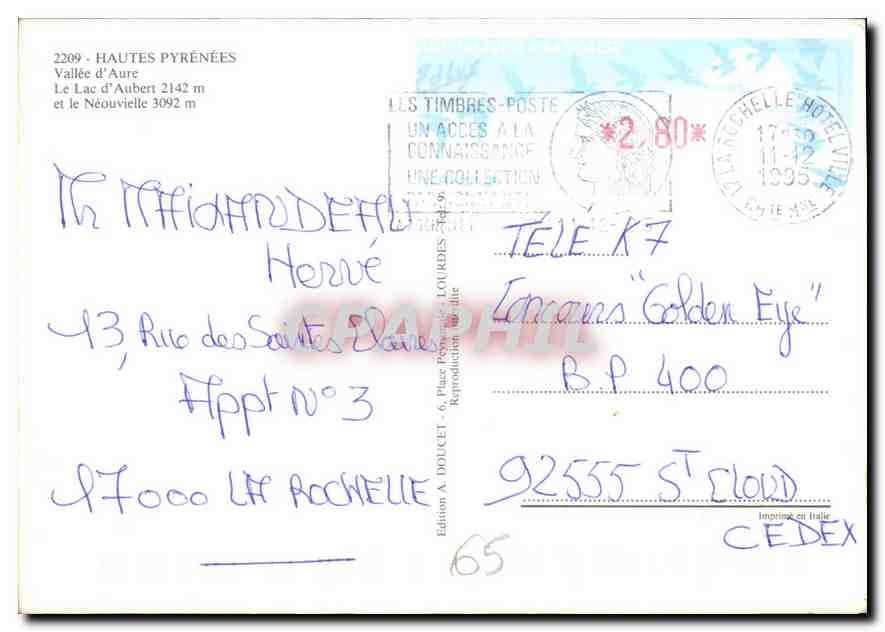 2209 - HAUTES PYRÉNÉES
Vallée d'Aure
Le Lac d'Aubert 2142 m
et le Néouvielle 3092 m
LES TIMBRES-POSTE
UN ACCES A LA
CONNAISSANCE
UNE COLLECTION
*2,80*
17 LA ROCHELLE HOTEL VILLE
11-12
1995
CHTE MME
Mr MAICHANDEAU
Hervé
13, Rue des Saintes Claires
Appt N° 3
17000 LA ROCHELLE
Edition A. DOUCET - 6, Place Peyramale - LOURDES - Tél.
Reproduction interdite
TÉLÉ K7
Concours "Golden Eye"
B.P 400
92555 ST CLOUD
Imprimé en Italie
CEDEX
65
CPAPHIL